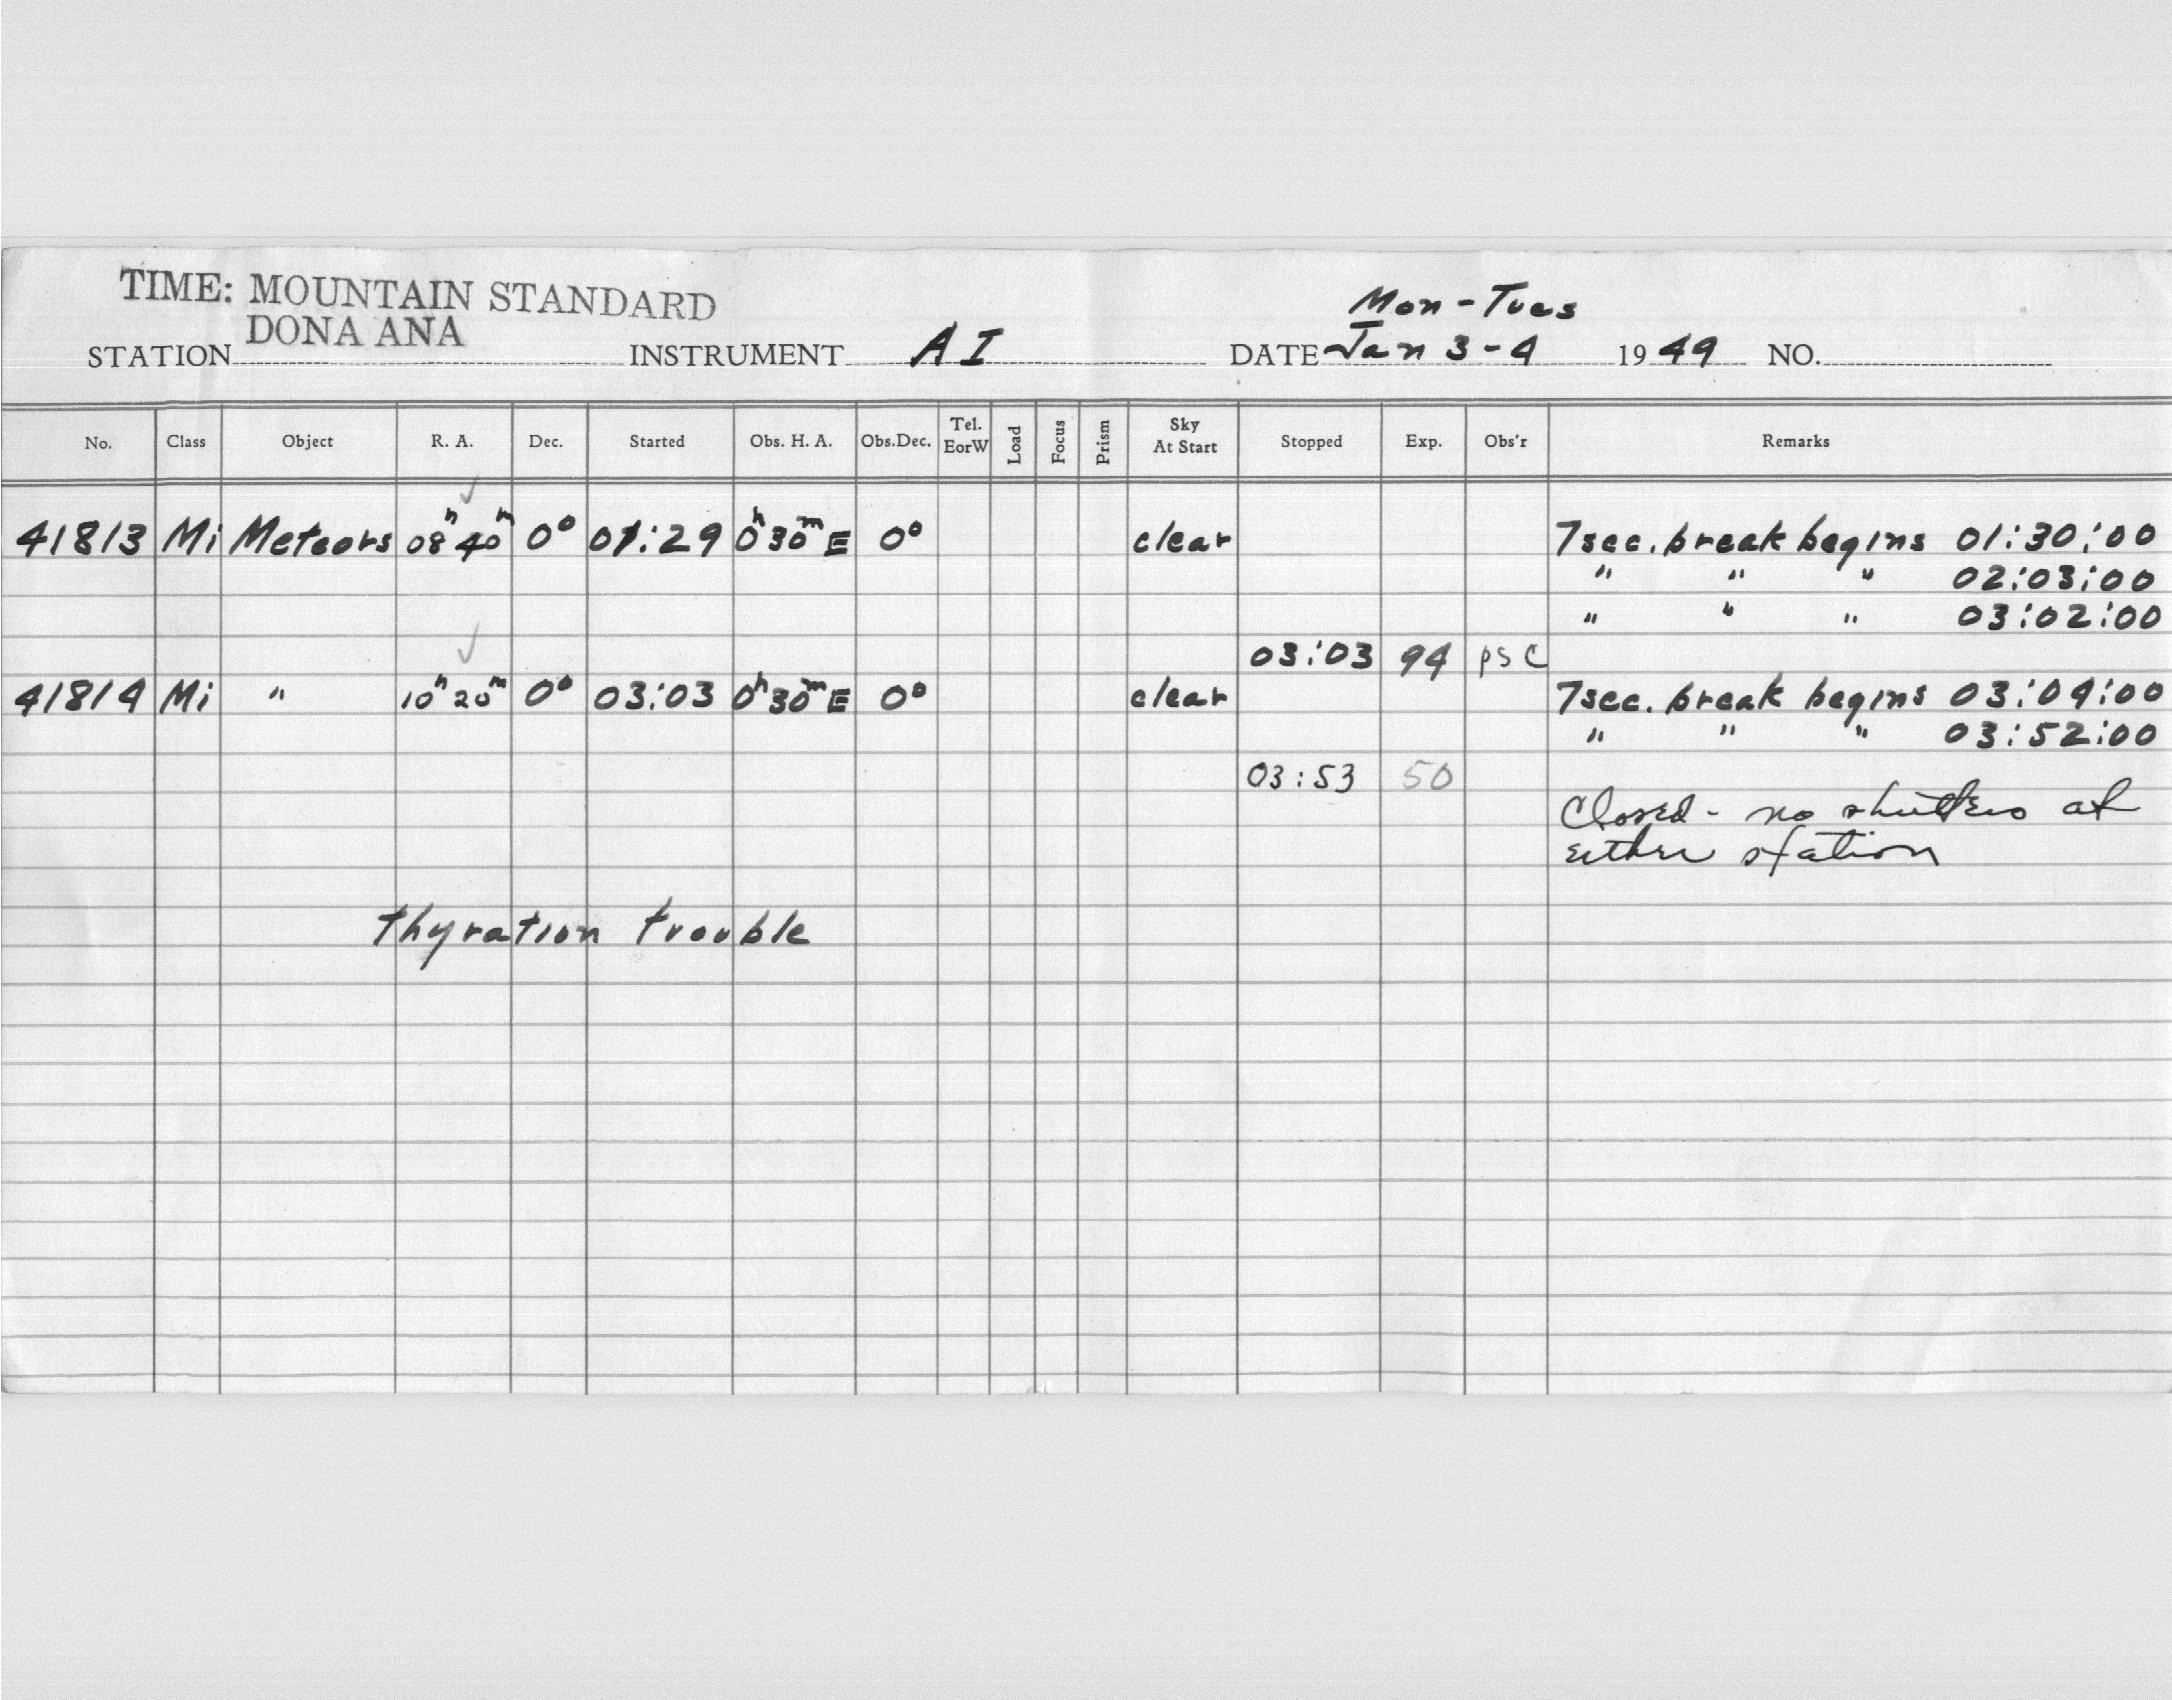 TIME: MOUNTAIN STANDARD
Mon - Tues
STATION DONA ANA INSTRUMENT AI DATE Jan 3-4 1949 NO.
No. Class Object R. A. Dec. Started Obs. H. A. Obs.Dec. Tel. EorW Load Focus Prism Sky At Start Stopped Exp. Obs'r Remarks
41813 Mi Meteors 08h 40m 0° 01:29 0h 30m E 0° clear 7sec. break begins 01:30:00
" " " 02:03:00
" " " 03:02:00
03:03 94 PSC
41814 Mi " 10h 20m 0° 03:03 0h 30m E 0° clear 7sec. break begins 03:04:00
" " " 03:52:00
03:53 50
Closed - no shutters at
either station
thyration trouble